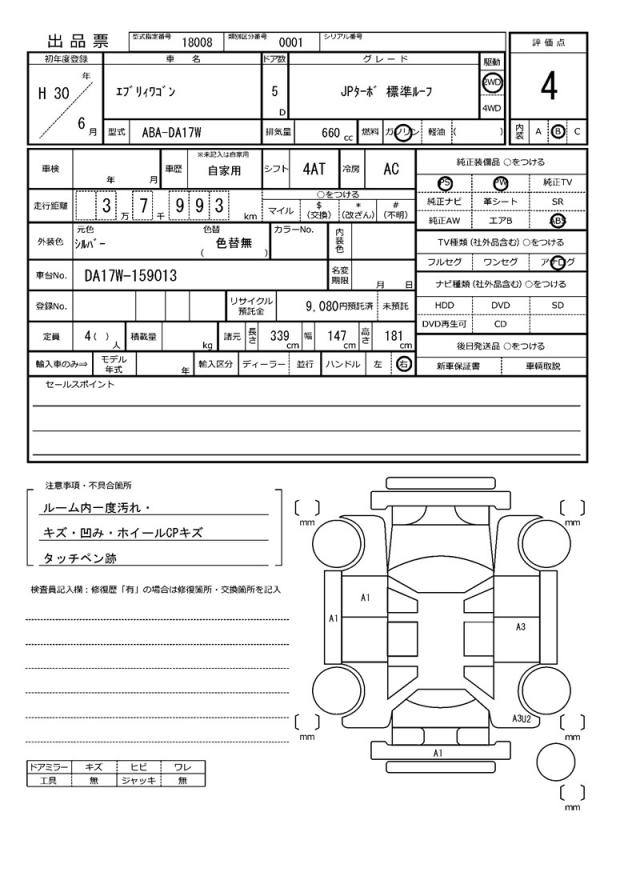 出品票 型式指定番号 18008 類別区分番号 0001 シリアル番号
評価点
4
内装 A B C
初年度登録 車名 ドア数 グレード 駆動
H 30 年 6 月 ｴﾌﾞﾘｨﾜｺﾞﾝ 5 D JPﾀｰﾎﾞ 標準ﾙｰﾌ 2WD
4WD
型式 ABA-DA17W 排気量 660 cc 燃料 ガソリン 軽油 ( )
車検 年 月 車歴 ※未記入は自家用 自家用 シフト 4AT 冷房 AC
走行距離 3 万 7 千 9 9 3 km ○をつける
マイル $ (交換) * (改ざん) # (不明)
外装色 元色 ｼﾙﾊﾞｰ 色替 ( 色替無 ) カラーNo. 内装色
車台No. DA17W-159013 名変期限 月 日
登録No. リサイクル預託金 9,080円預託済 未預託
定員 4( ) 人 積載量 kg 諸元 長さ 339 cm 幅 147 cm 高さ 181 cm
輸入車のみ⇒ モデル年式 年 輸入区分 ディーラー 並行 ハンドル 左 右
純正装備品 ○をつける
PS PW 純正TV
純正ナビ 革シート SR
純正AW エアB ABS
TV種類 (社外品含む) ○をつける
フルセグ ワンセグ アナログ
ナビ種類 (社外品含む) ○をつける
HDD DVD SD
DVD再生可 CD
後日発送品 ○をつける
新車保証書 車輌取説
セールスポイント
注意事項・不具合箇所
ルーム内一度汚れ・
キズ・凹み・ホイールCPキズ
タッチペン跡
検査員記入欄：修復歴「有」の場合は修復箇所・交換箇所を記入
ドアミラー キズ ヒビ ワレ
工具 無 ジャッキ 無
[ ] mm
[ ] mm
A1
A1
A3
A3U2
[ ] mm
[ ] mm
A1
[ ] mm